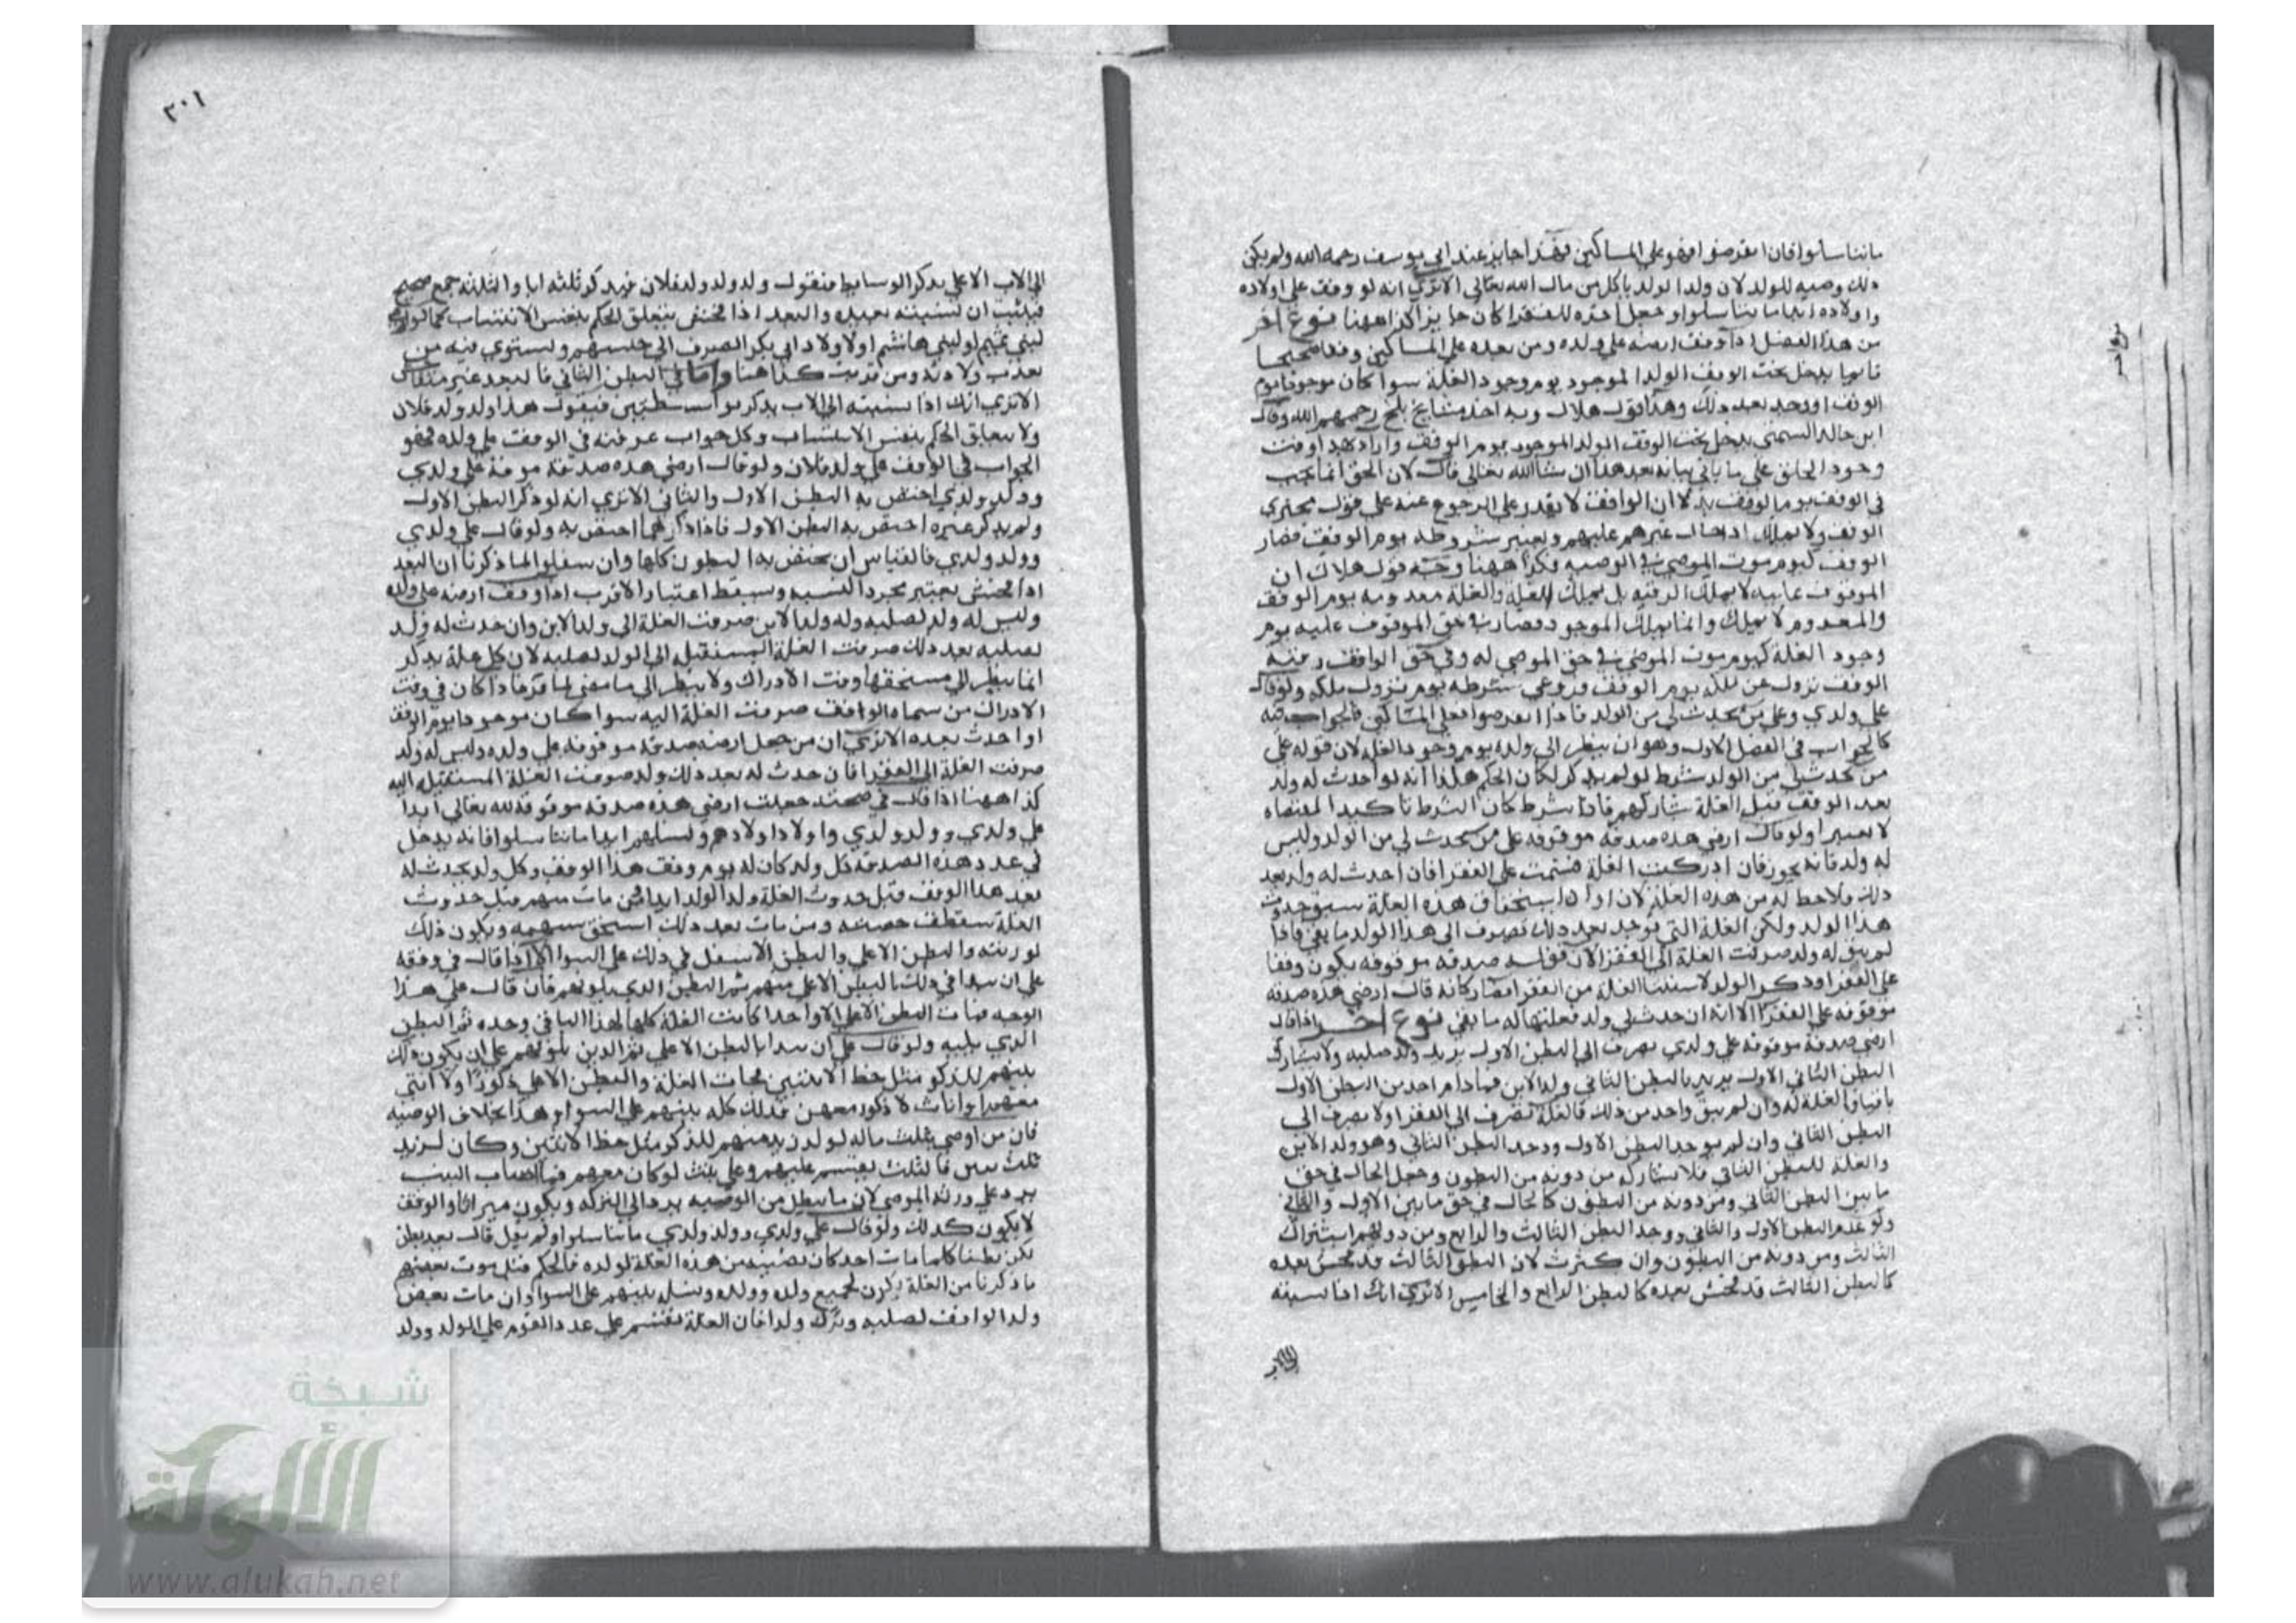 ما تناسلوا فان انقرضوا فهو على المساكين فهذا جايز عند ابي يوسف رحمه الله ولم يكن
ذلك وصيه للولد لان ولد الولد ياكل من مال الله تعالى الا ترى انه لو وقف على اولاده
واولاده ابدا ما تناسلوا وجعل اخره للفقرا كان جايزا كذا ههنا نوع اخر
من هذا الفصل اذا وقف ارضه على ولده ومن بعده على المساكين وقفا صحيحا
فانما يدخل تحت الوقف الولد الموجود يوم وجود الغلة سوا كان موجودا يوم
الوقف او وجد بعد ذلك وهذا قول هلال وبه اخذ مشايخ بلخ رحمهم الله وقال
ابن خالد السمتى يدخل تحت الوقف الولد الموجود يوم الوقف
وجود على ما ياتي بيانه بعد هذا ان شا الله تعالى قال لان الحق انما يجب
في الوقف يوم الوقف لان الواقف لا يقدر على الرجوع عنه على قول
الوقف ولا يملك ادخال غيرهم عليهم ويعتبر شروطه يوم الوقف فصار
الوقف كيوم موت الموصي في الوصيه فكذا ههنا وجه قول هلال ان
الموقوف عليه لا يملك الرقبه بل يملك الغلة والغلة معدومه يوم الوقف
والمعدوم لا يملك وانما يملك الموجود فصار في حق الموقوف عليه يوم
وجود الغلة كيوم موت الموصى في حق الموصى له وفي حق الواقف وقته
الوقف يزول عن ملكه يوم الوقف فروعي شرطه يوم يزول ملكه ولو قال
على ولدي وعلى من يحدث لي من الولد فاذا انقرضوا فعلى المساكين فالجواب فيه
كالجواب في الفصل الاول وهو ان ينظر الى ولده يوم وجود الغلة لان قوله على
من يحدث لي من الولد شرط لو لم يذكر لكان الحكم هكذا انه لو حدث له ولد
بعد الوقف قبل الغلة شاركهم فاذا شرط كان الشرط تاكيدا لمقتضاه
لا تغييرا ولو قال ارضي هذه صدقه موقوفه على من يحدث لي من الولد وليس
له ولد فانه يجوز فان ادركت الغلة قسمت على الفقرا فان حدث له ولد بعد
ذلك فلا حظ له من هذه الغلة لان اوان استحقاق هذه الغلة سبق حدوث
هذا الولد ولكن الغلة التي توجد بعد ذلك تصرف الى هذا الولد ما بقي فاذا
لم يبق له ولد صرفت الغلة الى الفقرا لان قوله صدقه موقوفه يكون وقفا
على الفقرا وذكر الولد لاستثنا الغلة من الفقرا فصار كانه قال ارضي هذه صدقه
موقوفه على الفقرا الا انه ان حدث لي ولد فغلتها له ما بقي نوع اخر اذا قال
ارضي صدقة موقوفه على ولدي يصرف الى البطن الاول يريد ولد صلبه ولا يشارك
البطن الثاني الاول يريد بالبطن الثاني ولد الابن فما دام احد من البطن الاول
باقيا فالغلة له وان لم يبق واحد من ذلك فالغلة تصرف الى الفقرا ولا يصرف الى
البطن الثاني وان لم يوجد البطن الاول ووجد البطن الثاني وهو ولد الابن
والغلة للبطن الثاني فلا يشاركه من دونه من البطون وجعل الحال في حق
ما بين البطن الثاني ومن دونه من البطون كالحال في حق ما بين الاول والثاني
ولو عدم البطن الاول والثاني ووجد البطن الثالث والرابع ومن دونهم اشترك
الثالث ومن دونه من البطون وان كثرت لان البطن الثالث قد فحش بعده
كالبطن الثالث قد فحش بعده كالبطن الرابع والخامس الا ترى انك اذا نسبته
٣٠١
الى الاب الاعلى يذكر الوسايط فتقول ولد ولد ولد فلان فيذكر ثلثه ابا والثلثه جمع صحيح
فيثبت ان نسبته بعيده والبعد اذا فحش يتعلق الحكم بنفس الانتساب كما لو
لبني تميم او لبني هاشم او لاولاد ابي بكر الصرف الى جنسهم ويستوي فيه من
بعدت ولادته ومن قربت كذا ههنا واما في البطن الثاني فالبعد غير
الا ترى انك اذا نسبته الى الاب يذكر بواسطتين فيقول هذا ولد ولد فلان
ولا يتعلق الحكم بنفس الانتساب وكل جواب عرفته في الوقف على ولده فهو
الجواب في الوقف على ولد فلان ولو قال ارضي هذه صدقه موقوفة على ولدي
وولد ولدي اختص به البطن الاول والثاني الا ترى انه لو ذكر البطن الاول
ولم يذكر غيره اختص به البطن الاول فاذا ذكرهما اختص به ولو قال على ولدي
وولد ولدي فالقياس ان يختص به البطون كلها وان سفلوا لما ذكرنا ان البعد
اذا فحش يعتبر مجرد النسبه ويسقط اعتبار الاقرب اذا وقف ارضه على ولده
وليس له ولد لصلبه وله ولد الابن صرفت الغلة الى ولد الابن وان حدث له ولد
لصلبه بعد ذلك صرفت الغلة المستقبله الى الولد لصلبه لان كل غلة
انما ينظر الى مستحقها وقت الادراك ولا ينظر الى ما مضى فاذا كان في وقت
الادراك من سماه الواقف صرفت الغلة اليه سوا كان موجودا يوم الوقف
او حدث بعده الا ترى ان من جعل ارضه صدقه موقوفه على ولده وليس له ولد
صرفت الغلة الى الفقرا فان حدث له بعد ذلك ولد صرفت الغلة المستقبله اليه
كذا ههنا اذا قال في صحته جعلت ارضي هذه صدقه موقوفه لله تعالى ابدا
على ولدي وولد ولدي واولاد اولادهم ونسلهم ابدا ما تناسلوا فانه يدخل
في عدد هذه الصدقه كل ولد كان له يوم وقف هذا الوقف وكل ولد يحدث له
بعد هذا الوقف قبل حدوث الغلة وولد الولد ابدا فمن مات منهم قبل حدوث
الغلة سقطت حصته ومن مات بعد ذلك استحق سهمه ويكون ذلك
لورثته والبطن الاعلى والبطن الاسفل في ذلك على السوا الا اذا قال في وقفه
على ان يبدا في ذلك بالبطن الاعلى منهم ثم البطن الذي يلونهم فان قال على هذا
الوجه فمات البطن الاعلى الا واحدا كانت الغلة كلها لهذا الباقي وحده ثم البطن
الذي يليه ولو قال على ان يبدا بالبطن الاعلى ثم الذين يلونهم على ان يكون ذلك
بينهم للذكر مثل حظ الانثيين فجات الغلة والبطن الاعلى ذكورا ولا انثى
معهم او اناث لا ذكور معهن فذلك كله بينهم على السوا وهذا بخلاف الوصيه
فان من اوصى بثلث ماله لولد زيد بينهم للذكر مثل حظ الانثيين وكان لزيد
ثلث بنين فالثلث يقتسم عليهم وعلى بنت لو كان معهم فما اصاب البنت
يرد على ورثة الموصي لان ما يبطل من الوصيه يرد الى التركة ويكون ميراثا والوقف
لا يكون كذلك ولو قال على ولدي وولد ولدي ما تناسلوا ولم يقل قال بعد بطن
لكن بطنا كلما مات احد كان نصيبه من هذه الغلة لولده فالحكم قبل موت بعضهم
ما ذكرنا من الغلة يكون لجميع ولده وولده ونسله بينهم على السوا وان مات بعض
ولد الواقف لصلبه وترك ولدا فان الغلة تقتسم على عدد القوم على الولد وولد
شبكة
الألوكة
www.alukah.net